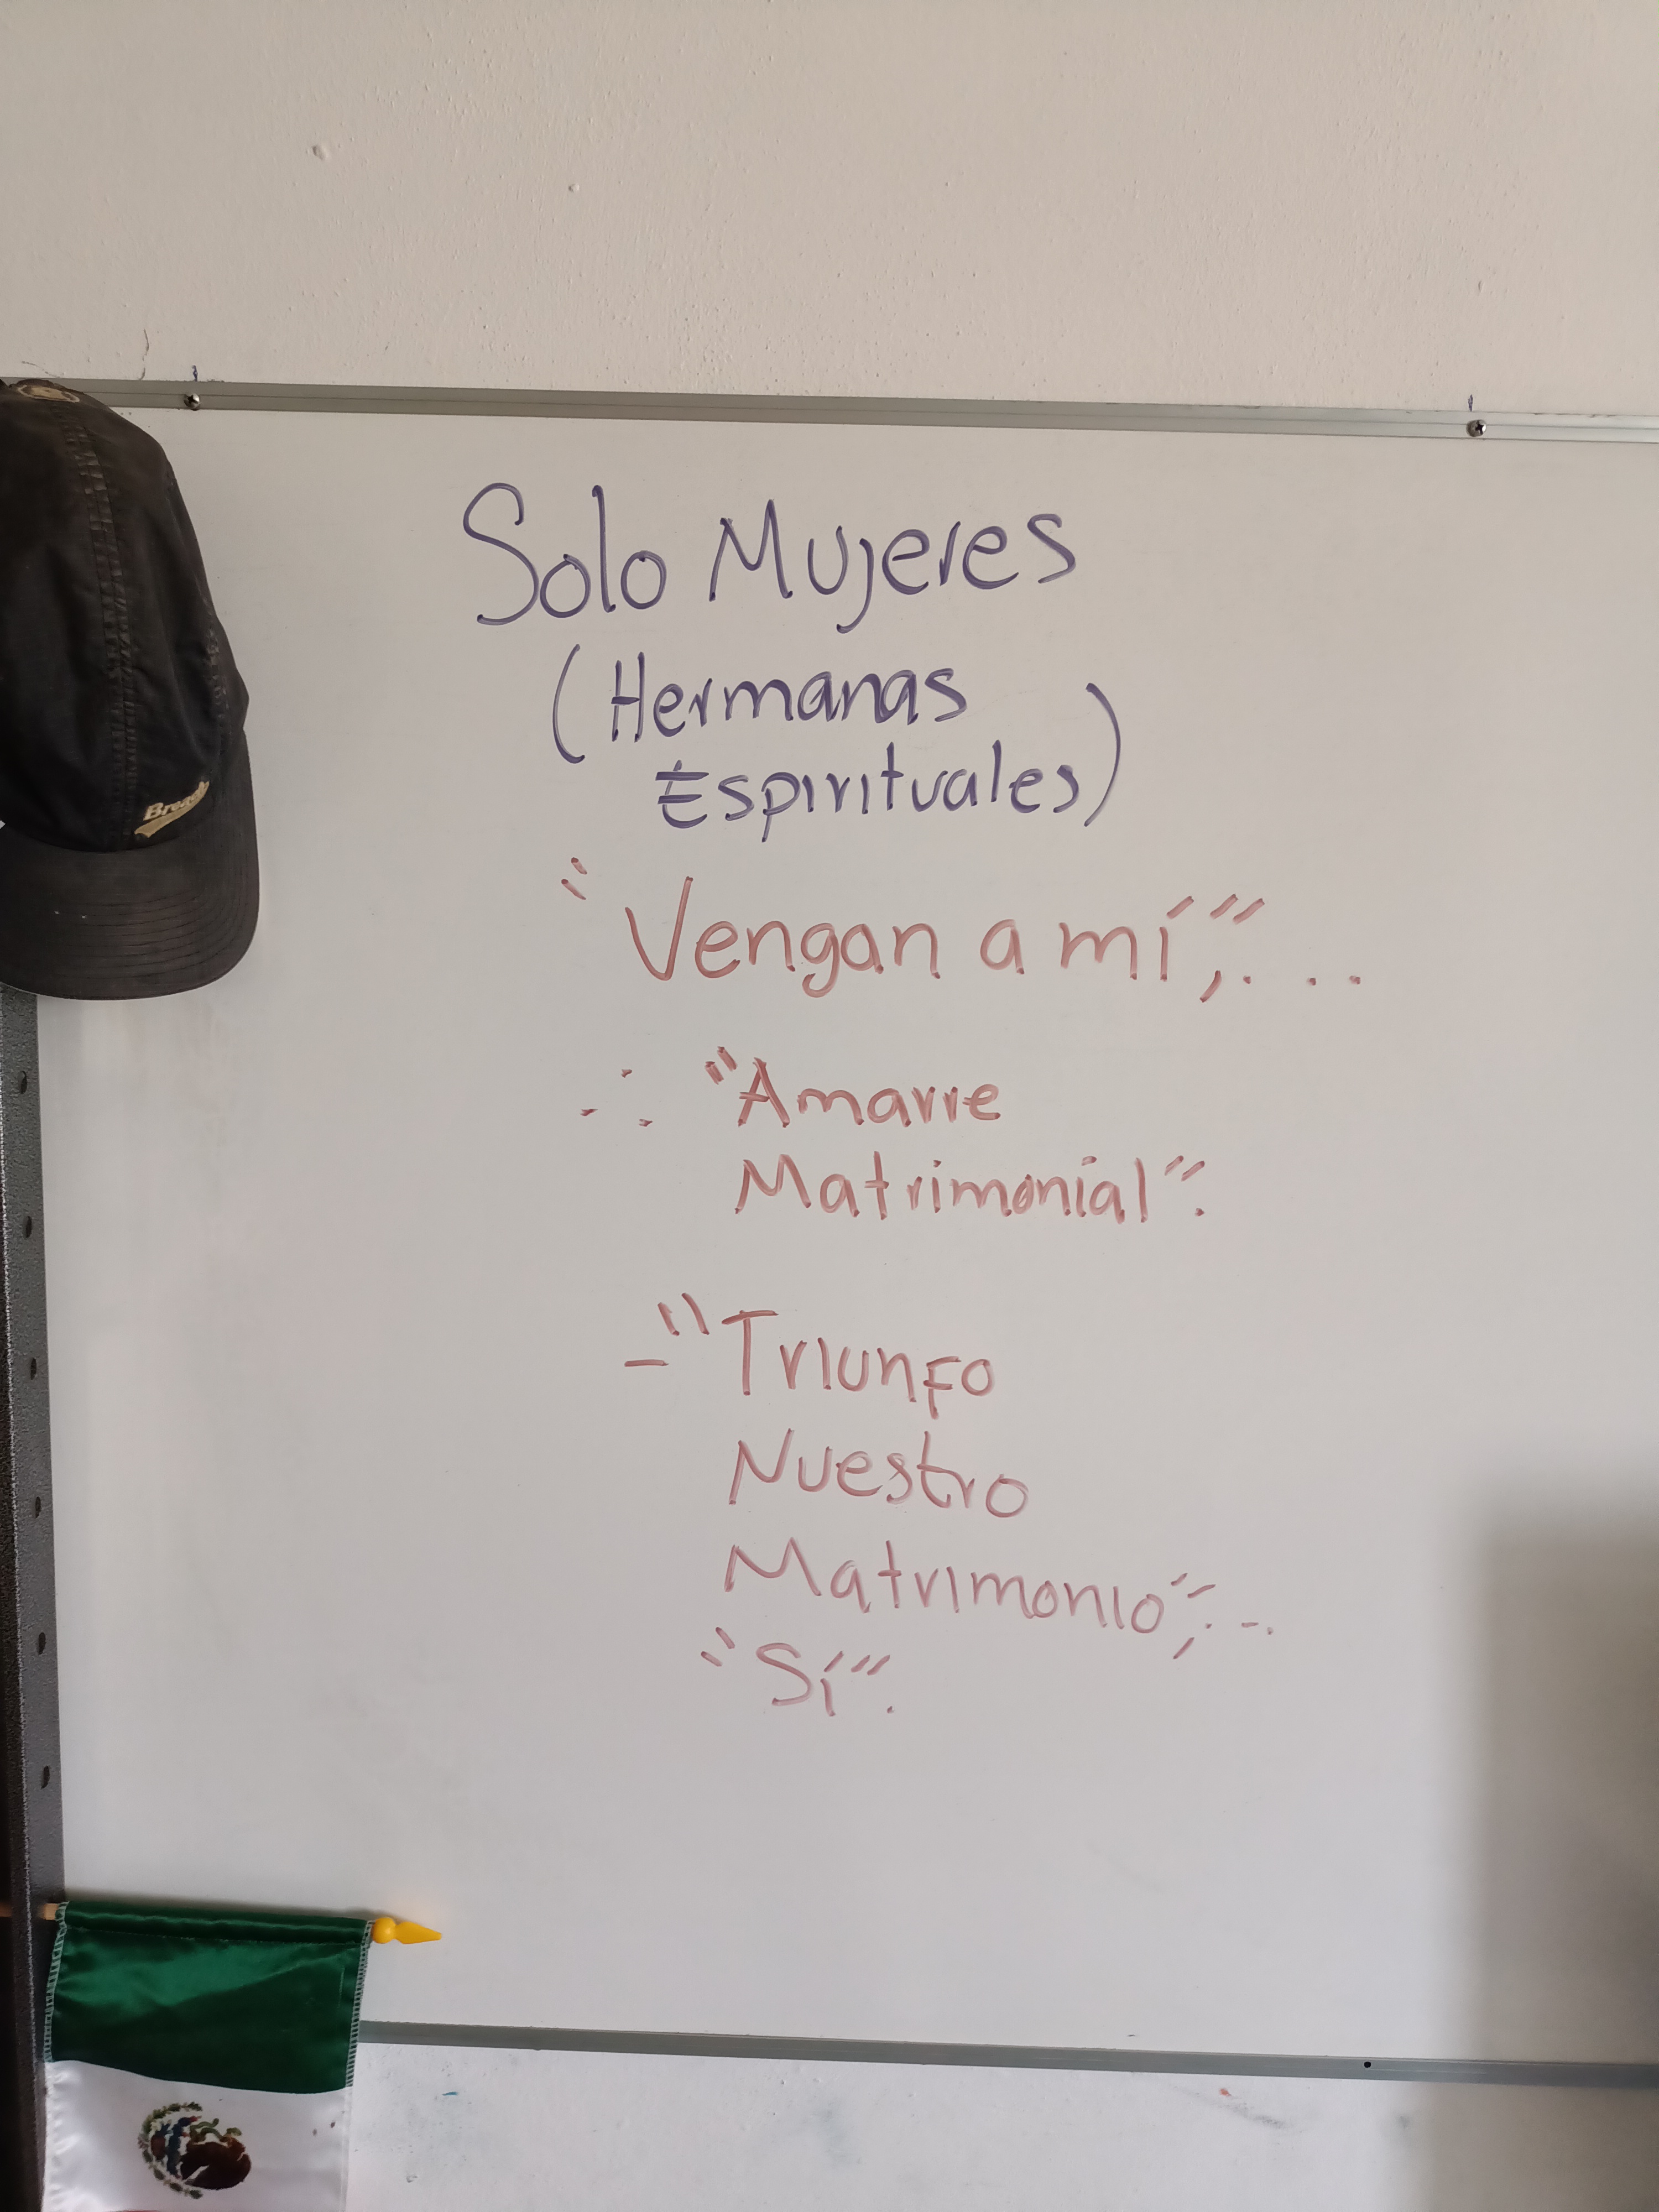 Solo Mujeres
(Hermanas
Espirituales)
"Vengan a mí",...
∴ "Amarre
Matrimonial".
- "Triunfo
Nuestro
Matrimonio",...
"Sí".